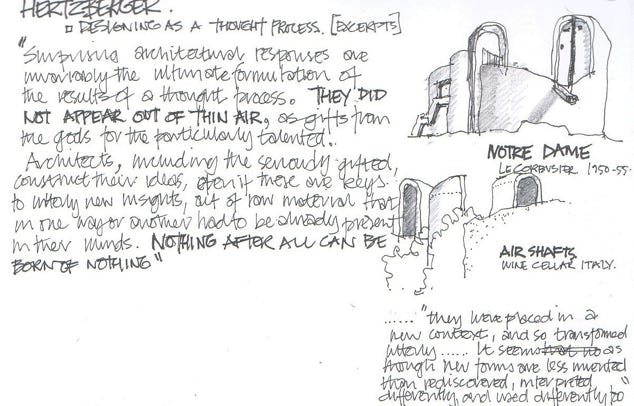 HERTZBERGER.
DESIGNING AS A THOUGHT PROCESS. [EXCERPTS]
"Surprising architectural responses are
invariably the ultimate formulation of
the results of a thought process. THEY DID
NOT APPEAR OUT OF THIN AIR, as gifts from
the gods for the particularly talented.
Architects, including the seriously gifted,
construct their ideas, even if these are keys
to utterly new insights, out of raw material that
in one way or another had to be already present
in their minds. NOTHING AFTER ALL CAN BE
BORN OF NOTHING"
NOTRE DAME
LE CORBUSIER 1950-55.
AIR SHAFTS
WINE CELLAR ITALY.
...... "they were placed in a
new context, and so transformed
utterly ..... It seems as
though new forms are less invented
than rediscovered, interpreted
differently and used differently"